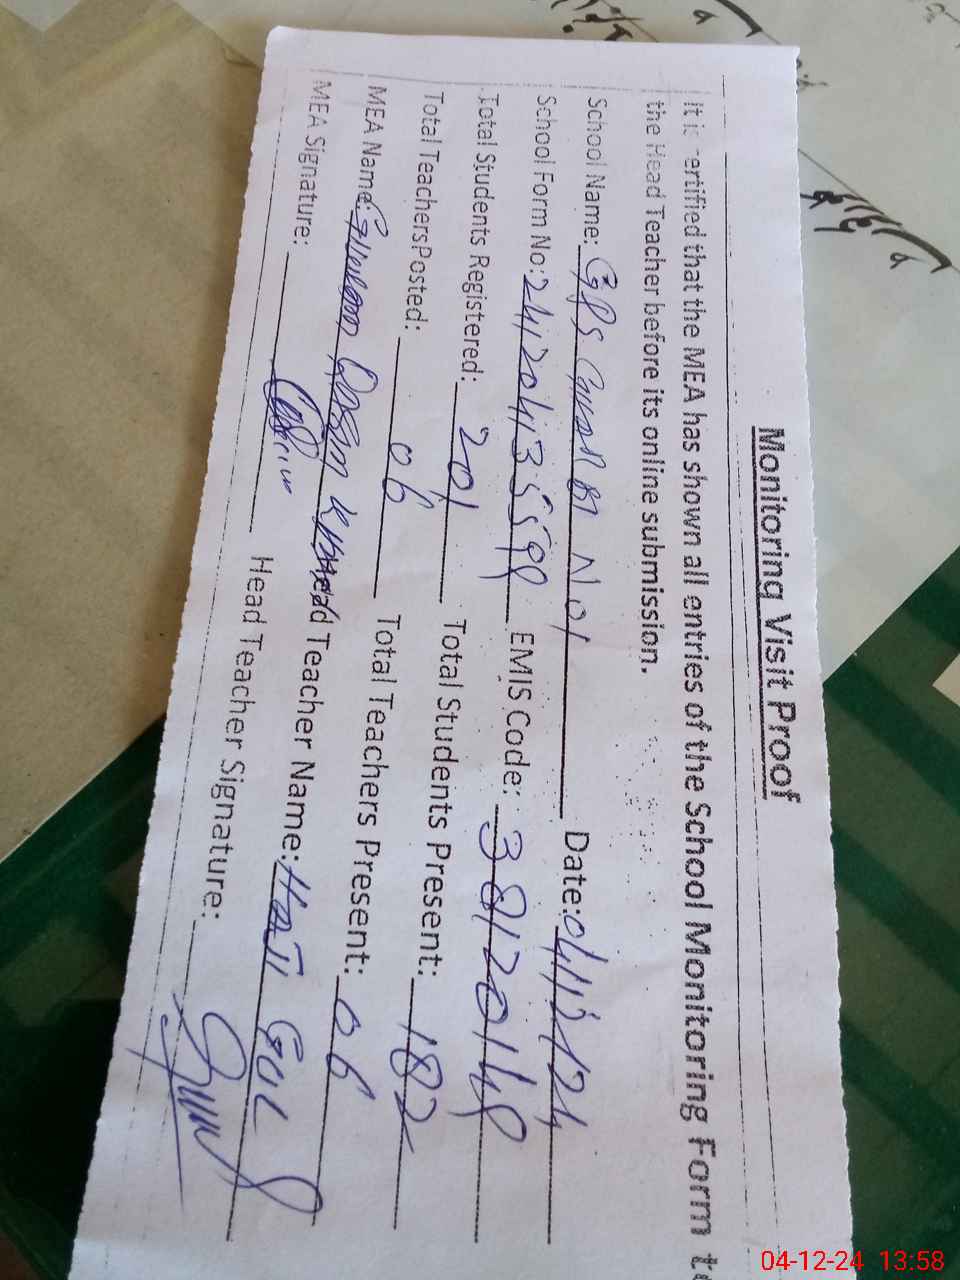 Monitoring Visit Proof
It is certified that the MEA has shown all entries of the School Monitoring Form to
the Head Teacher before its online submission.
School Name: GPS No1 Date: 04/12/24
School Form No: EMIS Code: 38120148
Total Students Registered: 201 Total Students Present: 182
Total Teachers Posted: 06 Total Teachers Present: 06
MEA Name: Head Teacher Name: Haji Gul
MEA Signature: Head Teacher Signature:
04-12-24 13:58